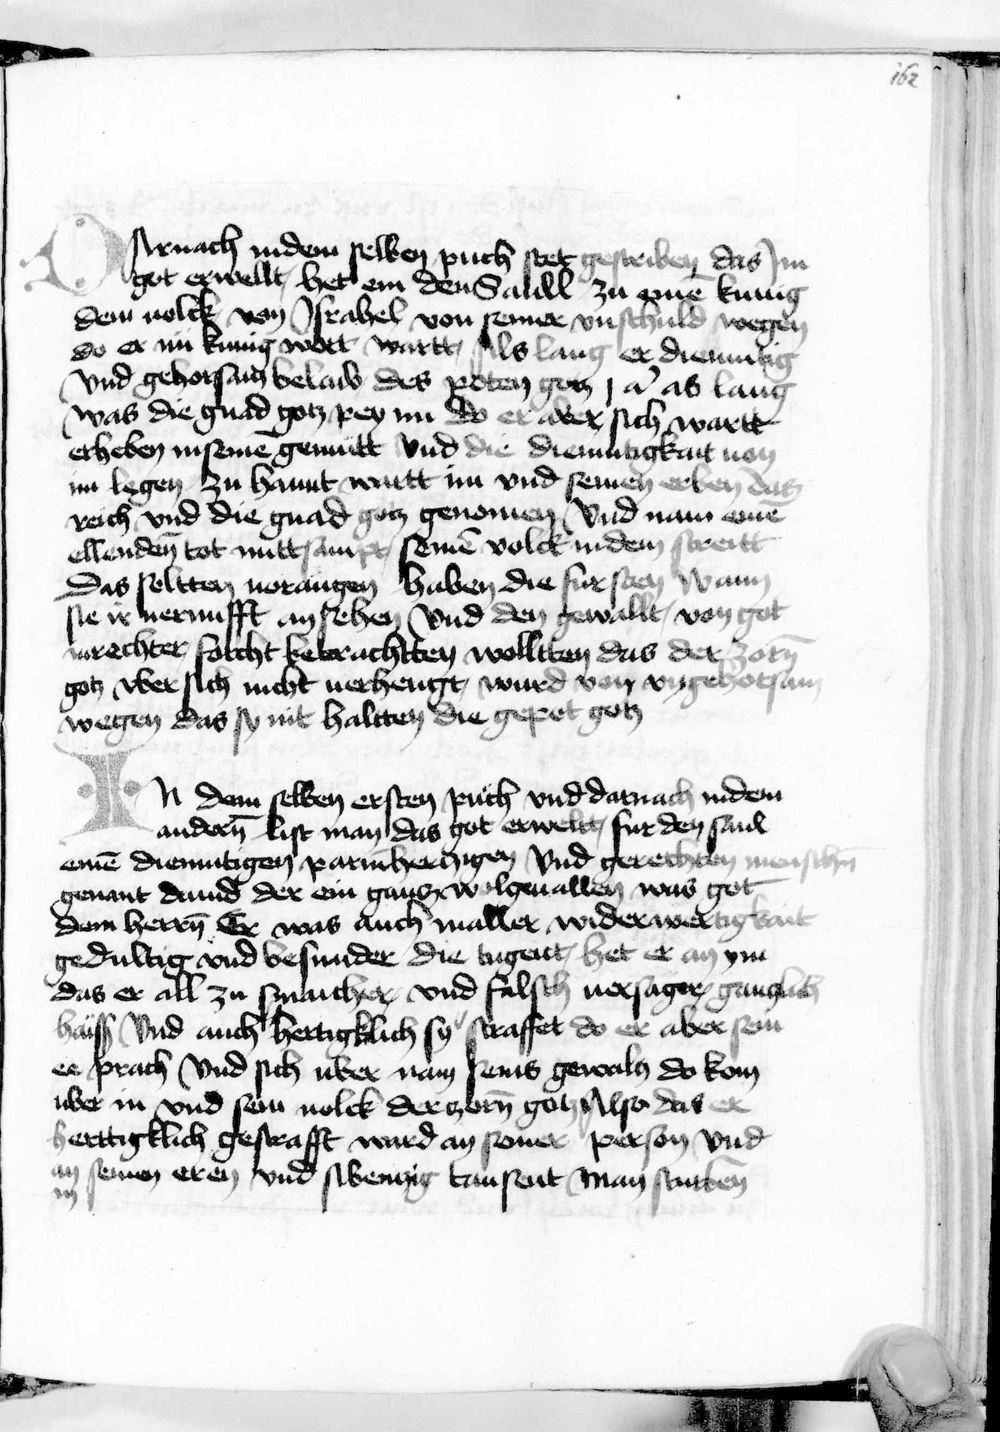 162
Darnach indem selben puch stet gescriben das Im
got erwellt het ein den Saull zu eynē kunig
dem uolck von Israhel von seiner vnschuld wegen
do er nū kunig wortt wartt Als lang er diemutig
Vnd gehorsam belaib des poten gotz as lang
was die gnad gotz pey im do er aber sich wartt
erheben in seinē gemütt Vnd die diemutigkait uon
im legen zu hannt wartt im vnd seinen erben das
reich vnd die gnad gotz genomen Vnd nam eine
ellenden tot mittsampt seinē volck indem streitt
Das seltten uoraugen haben die fursten Wann
sie ir uernufft an sehen Vnd den gewallt von got
in rechter forcht betrachtten wolltten das der zorn̄
gotz vber sich nicht uerhengt wurd von vngehorsam
wegen das sy nit haltten die gepot gotz
In dem selben ersten puch vnd darnach indem
andern̄ list man das got erwellt fur den saul
einē diemutigen parmherzigen Vnd gerechten menschn̄
genant dauid der ein gantz wolgeuallen was got
dem herrn̄ Er was auch in aller widerwertigkait
gedultig vnd besunder die tugent het er an ym
das er all zu smaicher vnd falsch uersager genczlich
hasß Vnd auch hertigklich sy straffet do er aber sein
er prach Vnd sich uber nam seins gewalcz do kom
uber in vnd sein uolck der zorn̄ gotz Also das er
herttigklich gestrafft ward an seiner person Vnd
an seinen eren vnd sibenzig tausent Man sturben̄
in